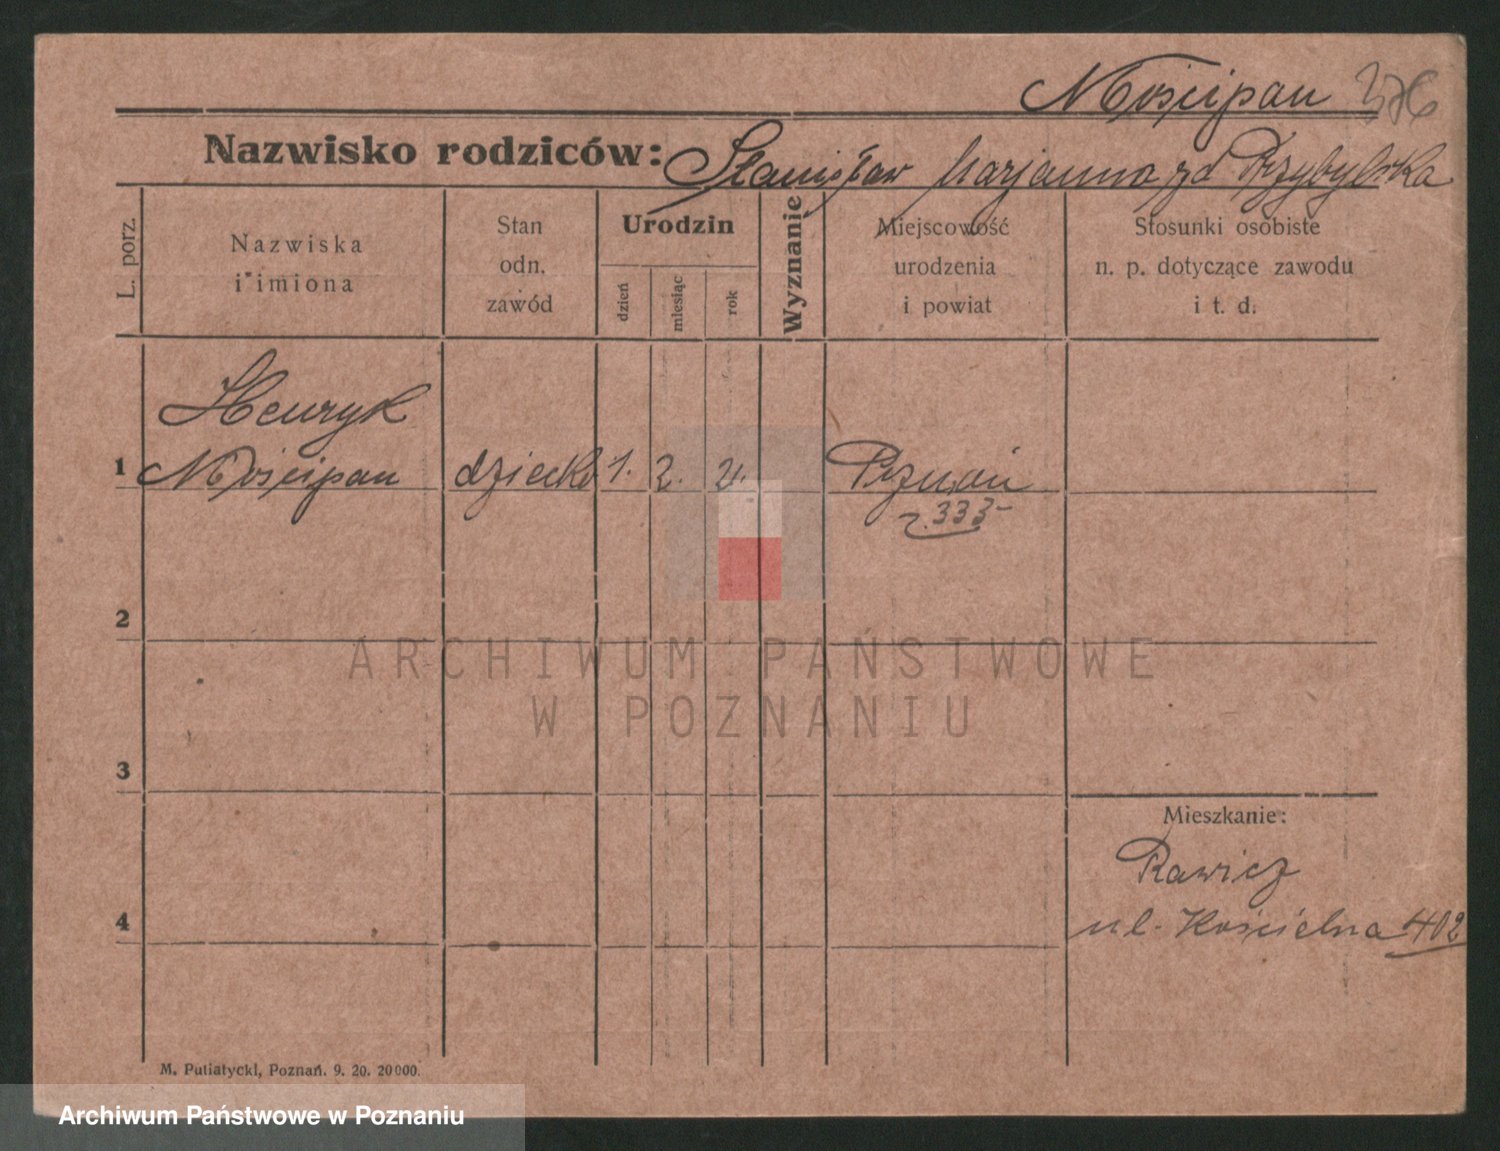 Mościpan 376
Nazwisko rodziców: Stanisław Marjanna zd Przybylska
L. porz.
Nazwiska
i imiona
Stan
odn.
zawód
Urodzin
dzień
miesiąc
rok
Wyznanie
Miejscowość
urodzenia
i powiat
Stosunki osobiste
n. p. dotyczące zawodu
i t. d.
Henryk
1 Mościpan dziecko 1. 2. 21. Poznań
333
2
ARCHIWUM PAŃSTWOWE
W POZNANIU
3
Mieszkanie:
Rawicz
ul. Kościelna 402
4
M. Putiatycki, Poznań. 9. 20. 20000.
Archiwum Państwowe w Poznaniu